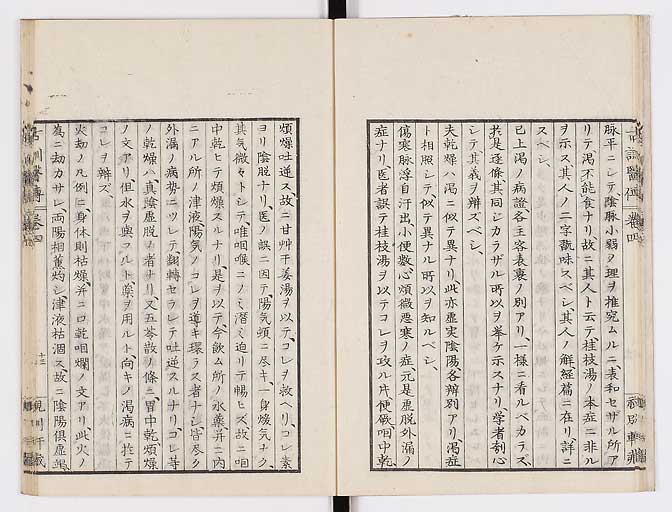 脉平ニシテ、陰脉小弱ノ理ヲ推究ムルニ、表和セザル所ア
リテ、渇不能食ナリ、故ニ其人ト云テ、桂枝湯ノ本症ニ非ル
ヲ示ス、其人ノ二字翫味スベシ、其人ノ解経篇ニ在リ、詳ニ
スベシ、
已上渇ノ病證各主客表裏ノ別アリ、一様ニ看ルベカラズ、
於是逐條其同ジカラザル所以ヲ挙ケ示スナリ、学者刻心
シテ、其義ヲ辨ズベシ、
夫乾燥ハ渇ニ似テ異ナリ、此亦虚実陰陽各辨別アリ、渇症
ト相照シテ、似テ異ナル所以ヲ知ルベシ、
傷寒脉浮自汗出、小便数、心煩微悪寒ノ症、元是虚脱外漏ノ
症ナリ、医者誤テ桂枝湯ヲ以テコレヲ攻ル片、便厥咽中乾、
煩燥吐逆ス、故ニ甘艸干姜湯ヲ以テ、コレヲ救ヘリ、コレ素
ヨリ陰脱ナリ、医ノ誤ニ因テ、陽気頓ニ尽キ、一身煖気ナク、
其気微々トシテ、唯咽喉ニノミ潜ミ迫リテ暢ヒズ、故ニ咽
中乾ヒテ煩燥スルナリ、是ヲ以テ、今飲ム所ノ水薬、并ニ内
ニアル所ノ津液、陽気ノコレヲ導キ環ラス者ナシ、皆尽ク
外漏ノ病勢ニツレテ、飜轉セラレテ吐逆スルナリ、コレ等
ノ乾燥ハ、真陰虚脱ノ者ナリ、又五苓散ノ條ニ、胃中乾煩燥
ノ文アリ、但水ヲ與フルト、薬ヲ用ルト、向キノ渇病ニ於テ
コレヲ辨ズ、
火劫ノ凡例ニ、身体則枯燥、并ニ口乾咽爛ノ文アリ、此火ノ
為ニ劫カサレ、両陽相薫灼シ、津液枯涸ス、故ニ陰陽倶虚竭
巻四
十二